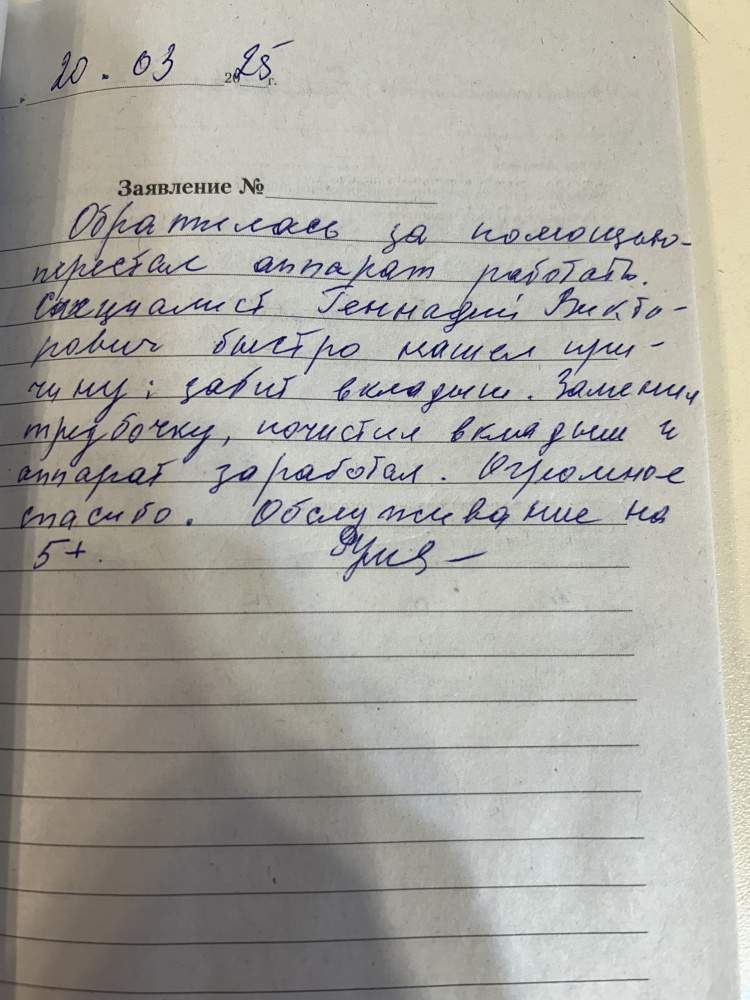 20.03 2025 г.
Заявление №
Обратилась за помощью-
перестал аппарат работать.
Специалист Геннадий Викто-
рович быстро нашел при-
чину: забит вкладыш. Заменил
трубочку, почистил вкладыш и
аппарат заработал. Огромное
спасибо. Обслуживание на
5+.